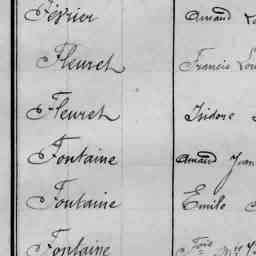 Février Amand
Fleuret Francis
Fleuret Isidore
Fontaine Amand Jean
Fontaine Emile
Fontaine